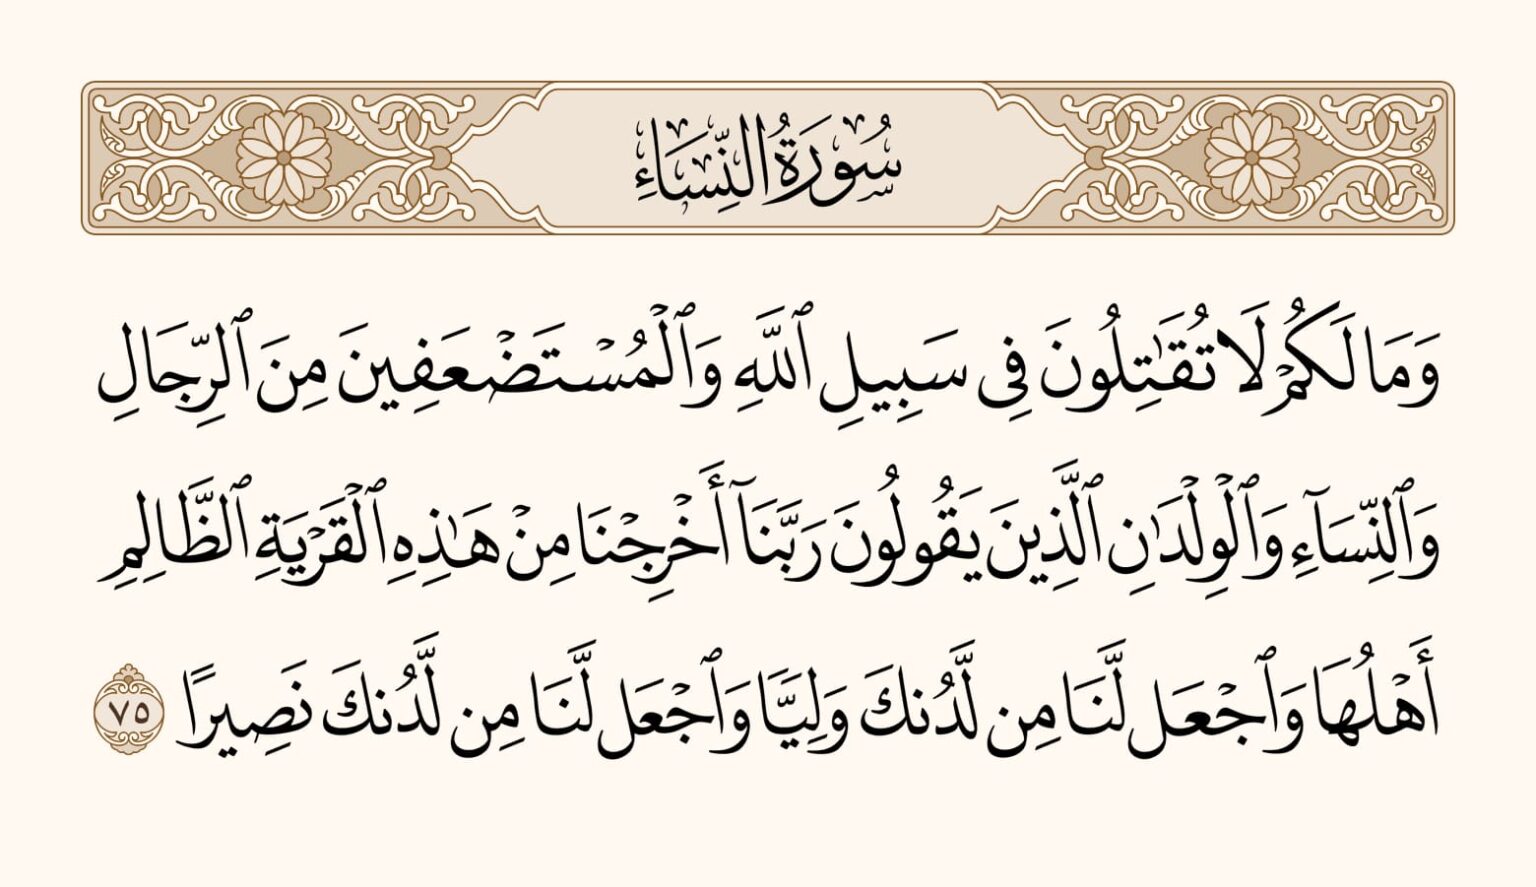 سُورَةُ النِّسَاءِ
وَمَا لَكُمْ لَا تُقَٰتِلُونَ فِى سَبِيلِ ٱللَّهِ وَٱلْمُسْتَضْعَفِينَ مِنَ ٱلرِّجَالِ
وَٱلنِّسَآءِ وَٱلْوِلْدَٰنِ ٱلَّذِينَ يَقُولُونَ رَبَّنَآ أَخْرِجْنَا مِنْ هَـٰذِهِ ٱلْقَرْيَةِ ٱلظَّالِمِ
أَهْلُهَا وَٱجْعَل لَّنَا مِن لَّدُنكَ وَلِيًّا وَٱجْعَل لَّنَا مِن لَّدُنكَ نَصِيرًا ٧٥